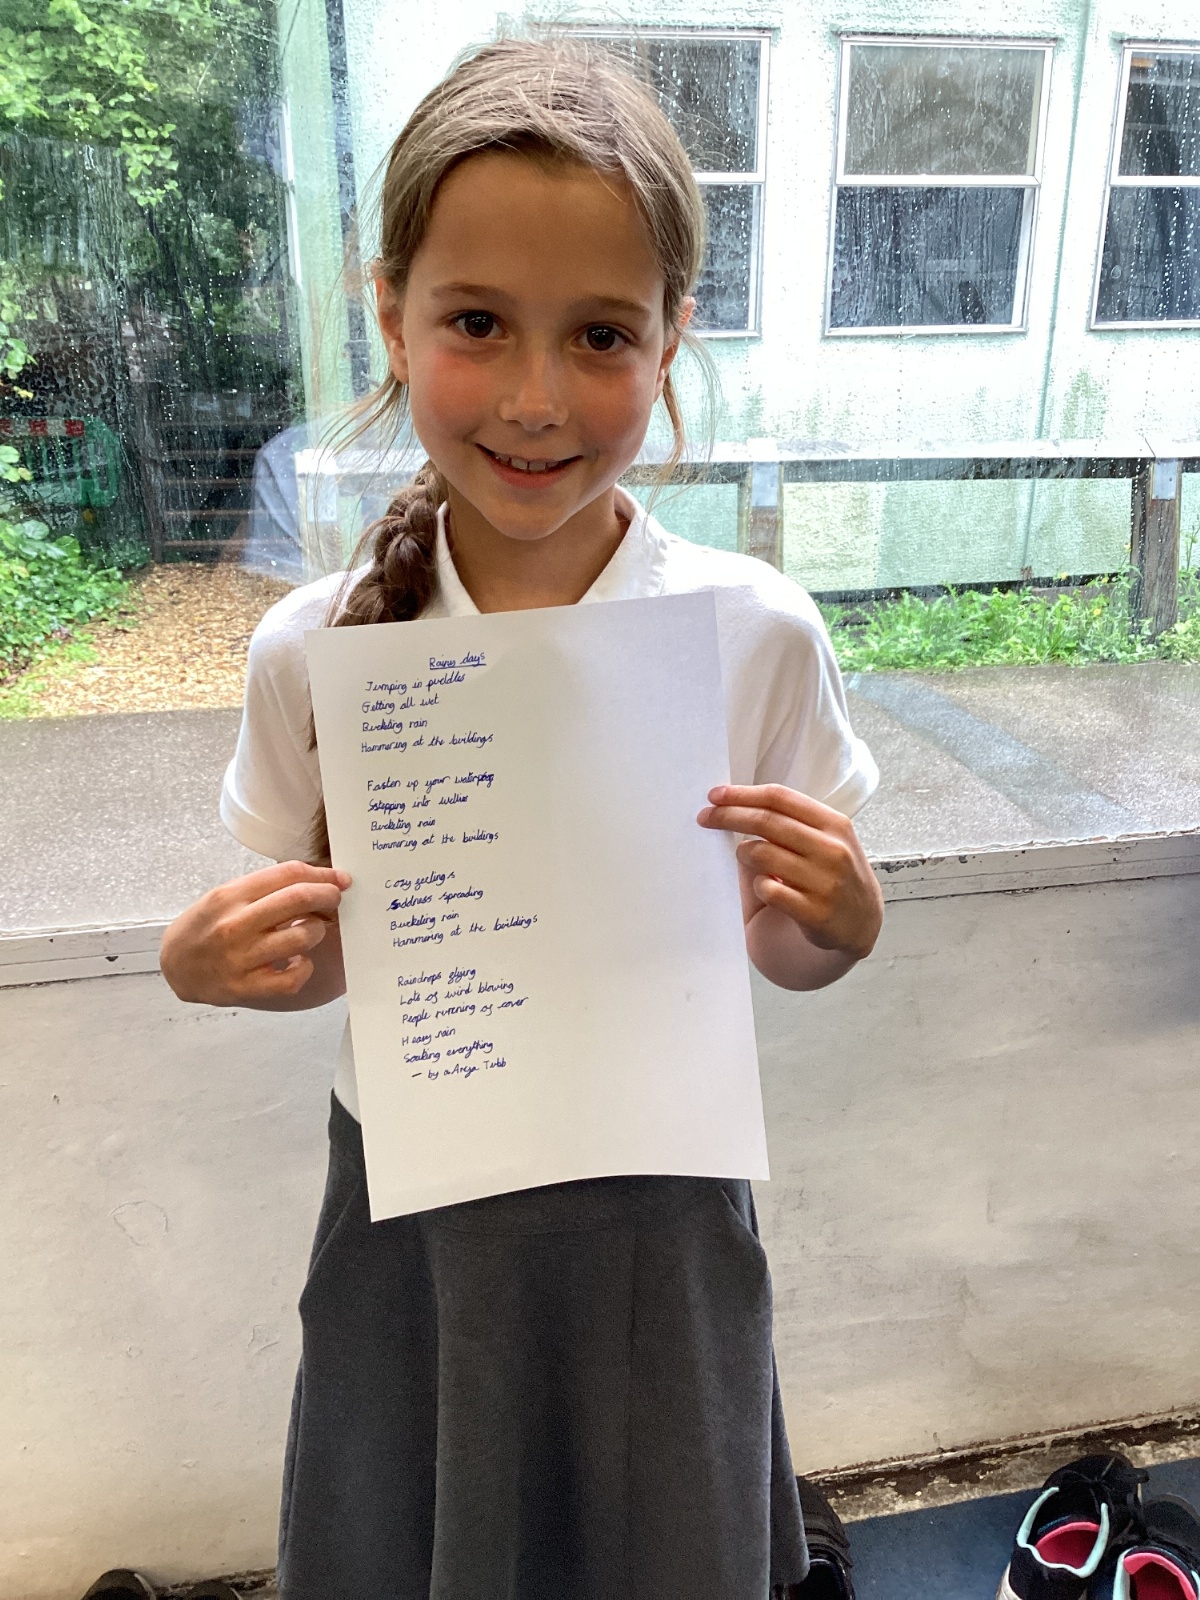 Rainy days
Jumping in puddles
Getting all wet
Bucketing rain
Hammering at the buildings
Fasten up your waterproof
Stepping into wellies
Bucketing rain
Hammering at the buildings
Cozy feelings
Saddness spreading
Bucketing rain
Hammering at the buildings
Raindrops flying
Lots of wind blowing
People running of cover
Heavy rain
Soaking everything
– by Tubb